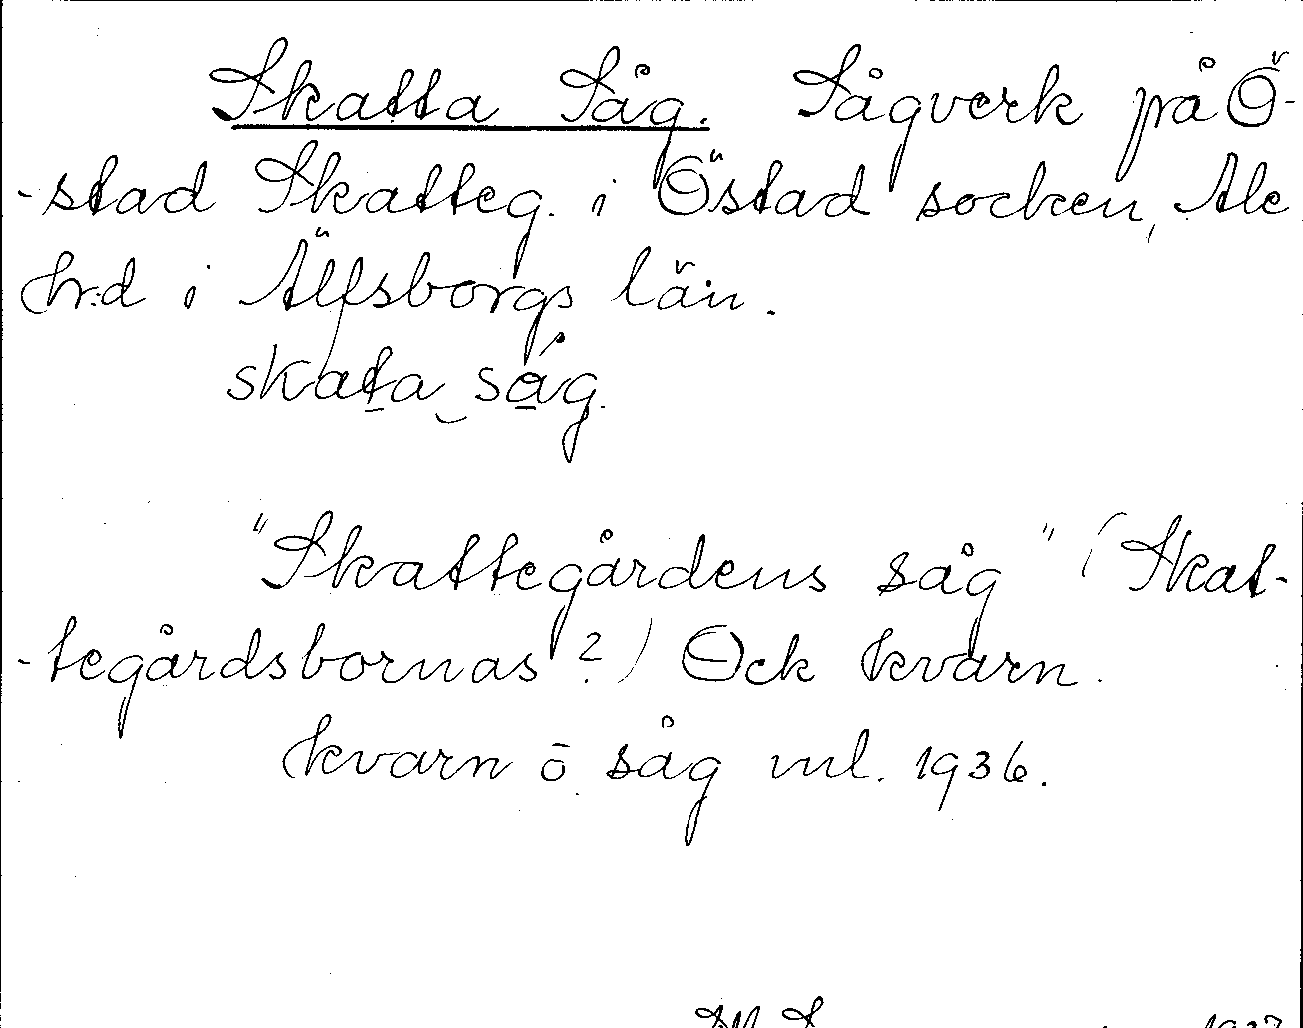 Skatta Såg. Sågverk på Ö-
-stad Skatteg. i Östad socken, Ale
hrd i Älfsborgs län.
skata såg.
"Skattegårdens såg" (Skat-
-tegårdsbornas?) Ock kvarn.
kvarn ō såg nml. 1936.